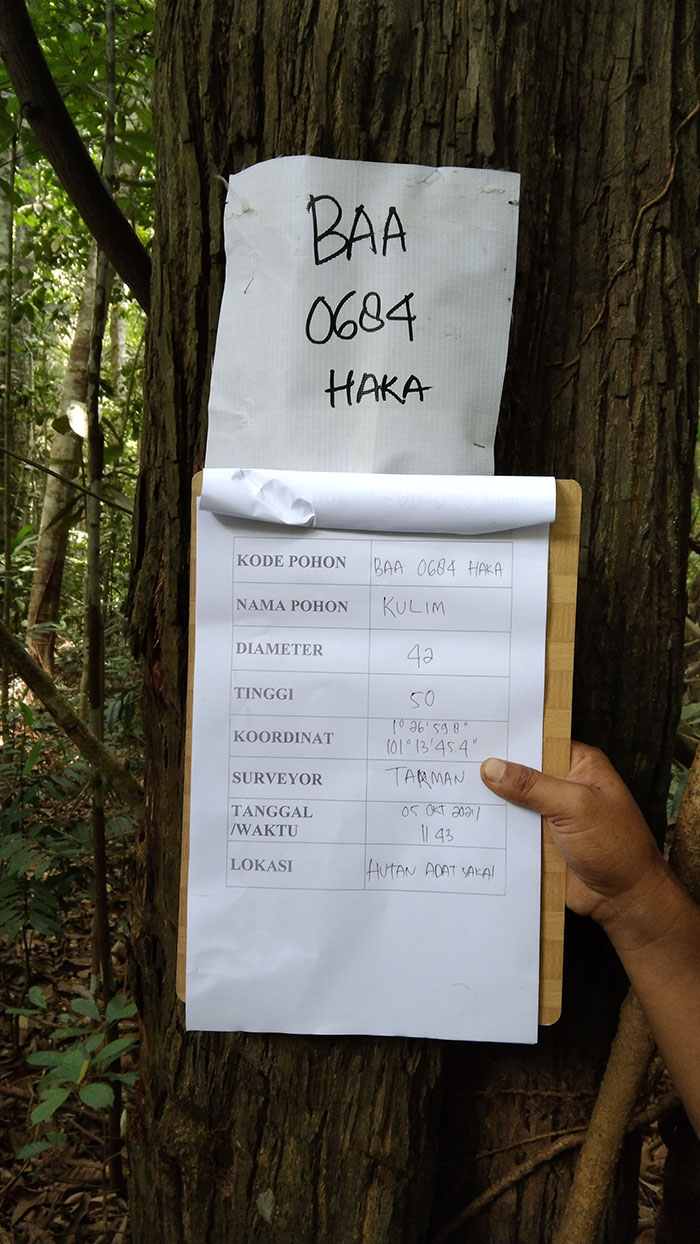 BAA
0684
HAKA
KODE POHON BAA 0684 HAKA
NAMA POHON KULIM
DIAMETER 42
TINGGI 50
KOORDINAT 1° 26' 59 8"
101° 13' 45 4"
SURVEYOR TARMAN
TANGGAL 05 OKT 2021/
/WAKTU 11 43
LOKASI HUTAN ADAT SAKAI